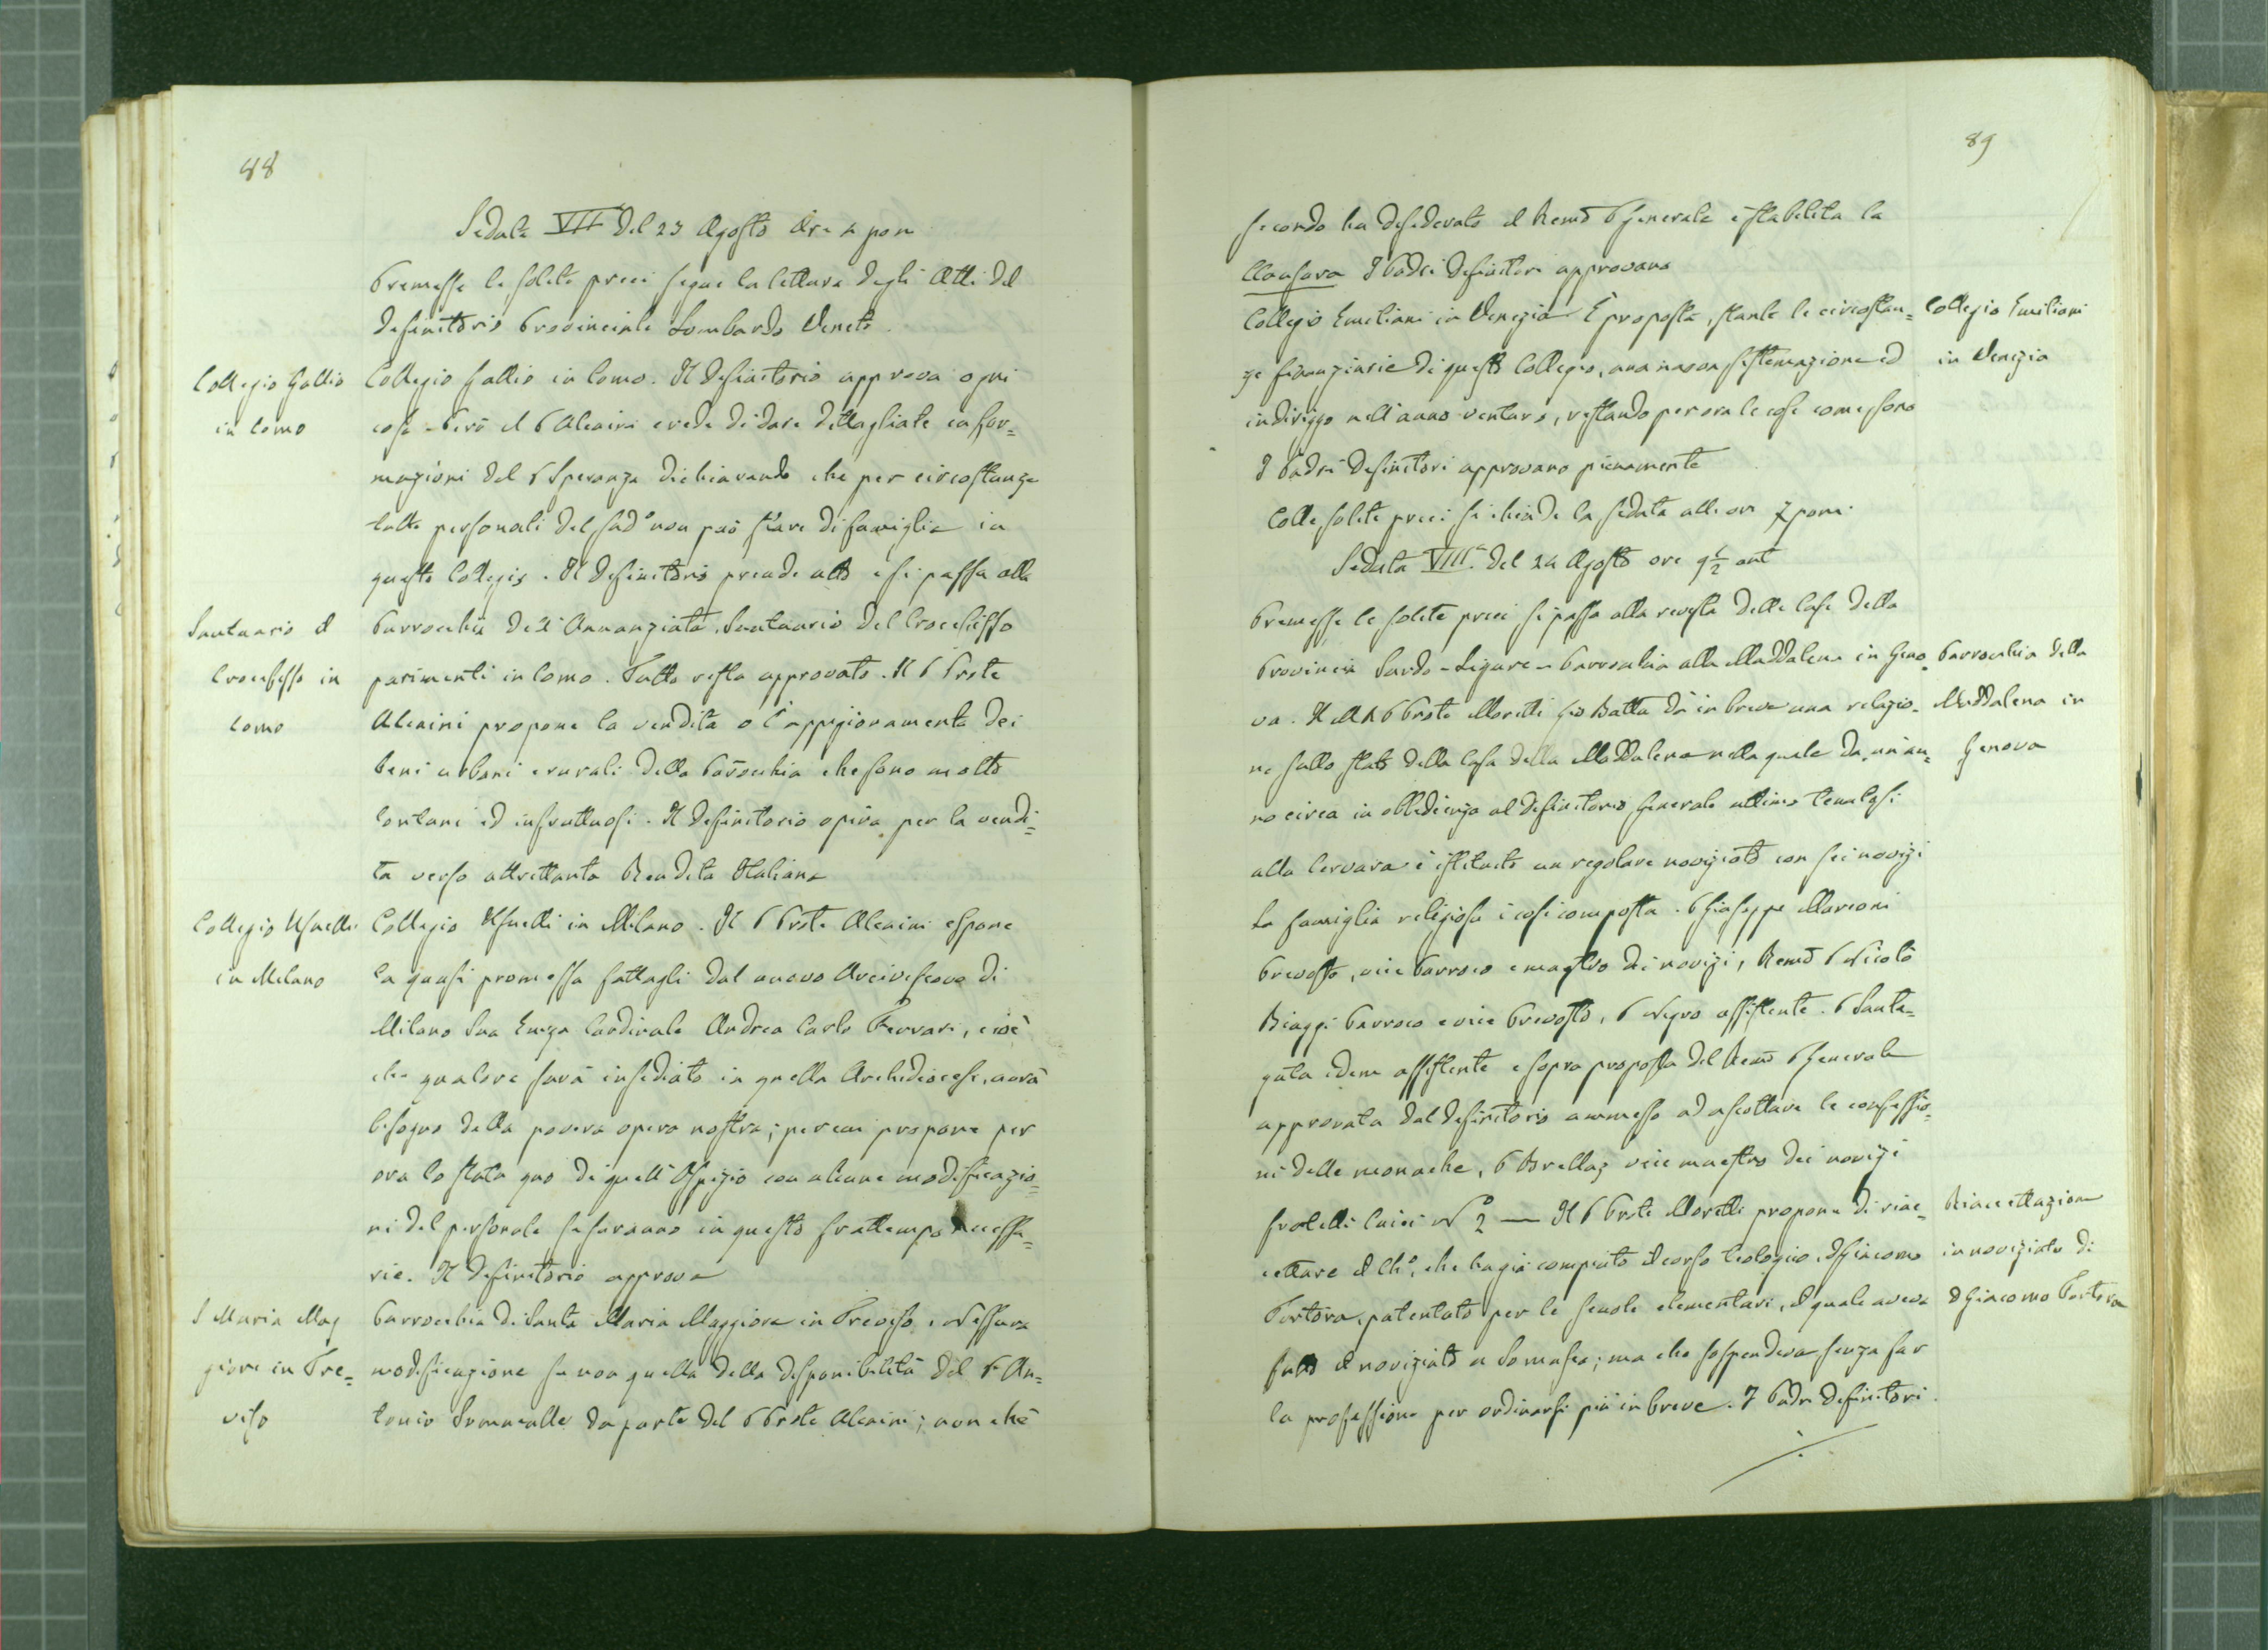 88
Seduta VIIª del 23 Agosto Ore 4 pom
Premesse le solite preci segue la lettura degli Atti del
definitorio Provinciale Lombardo Veneto.
Collegio Gallio
in Como
Collegio Gallio in Como. Il Definitorio approva ogni
cosa - Però il P Alcaini crede di dare dettagliate infor=
mazioni del P Speranza dichiarando che per circostanze
tutte personali del sudº non può stare di famiglia in
questo Collegio. Il Definitorio prende atto e si passa alla
Santuario il
Crocefisso in
Como
Parrocchia dell'Annunziata, Santuario del Crocefisso
parimenti in Como. Tutto resta approvato. Il P Prste
Alcaini propone la vendita o l'appigionamento dei
beni urbani e rurali della Parrocchia che sono molto
lontani ed infruttuosi. Il Definitorio opina per la vendi=
ta verso altrettanta Rendita Italiana
Collegio Usuelli
in Milano
Collegio Usuelli in Milano. Il P Prste Alcaini espone
la quasi promessa fattagli dal nuovo Arcivescovo di
Milano Sua Emza Cardinale Andrea Carlo Ferrari, cioè
che qualora sarà insediato in quella Archidiocesi, avrà
bisogno della povera opera nostra; per cui propone per
ora lo statu quo di quell'Ospizio con alcune modificazio=
ni del personale se saranno in questo frattempo necessa=
rie. Il Definitorio approva
S Maria Mag
giore in Tre=
viso
Parrocchia di Santa Maria Maggiore in Treviso. Nessuna
modificazione se non quella della disponibilità del P An=
tonio Sommcalle da parte del P Prste Alcaini; non chè
89
secondo ha desiderato il Remo P Generale è stabilita la
Clausura I Padri Definitori approvano
Collegio Emiliani in Venezia È proposta, stante le circostan=
Collegio Emiliani
in Venezia
ze finanziarie di questo Collegio, una nuova sistemazione ed
indirizzo nell'anno venturo, restando per ora le cose come sono
I Padri Definitori approvano pienamente
Colle solite preci si chiude la seduta alle ore 7 pom.
Seduta VIIIª del 24 Agosto ore 9 1/2 ant
Premesse le solite preci, si passa alla rivista delle Case della
Provincia Sardo-Ligure - Parrocchia alla Maddalena in Geno=
Parrocchia della
Maddalena in
Genova
va. Il M R P Prste Moretti Gio Batta dà in breve una relazio=
ne sullo stato della Casa della Maddalena nella quale da un an=
no circa in obbedienza al definitorio Generale ultimo tenutosi
alla Cervara è istituito un regolare noviziato con sei novizi
La famiglia religiosa è così composta. P Giuseppe Marconi
Prevosto, vice Parroco e maestro dei novizi, Remo P Nicolò
Biaggi Parroco e vice Prevosto, P Negro assistente. P Santa=
gata idem assistente e sopra proposta del Remo P Generale
approvata dal definitorio ammesso ad ascoltare le confessio=
ni delle monache, P Brellaz vice maestro dei novizi
fratelli laici Nº 2 — Il P Prste Moretti propone di riac=
Riaccettazione
in noviziato di
D Giacomo Tortora
cettare il Chº, che ha già compiuto il corso teologico, D Giacomo
Tortora, patentato per le scuole elementari, il quale aveva
fatto il noviziato a Somasca; ma che sospendeva senza far
la professione per ordinarsi più in breve. I Padri Definitori
./.